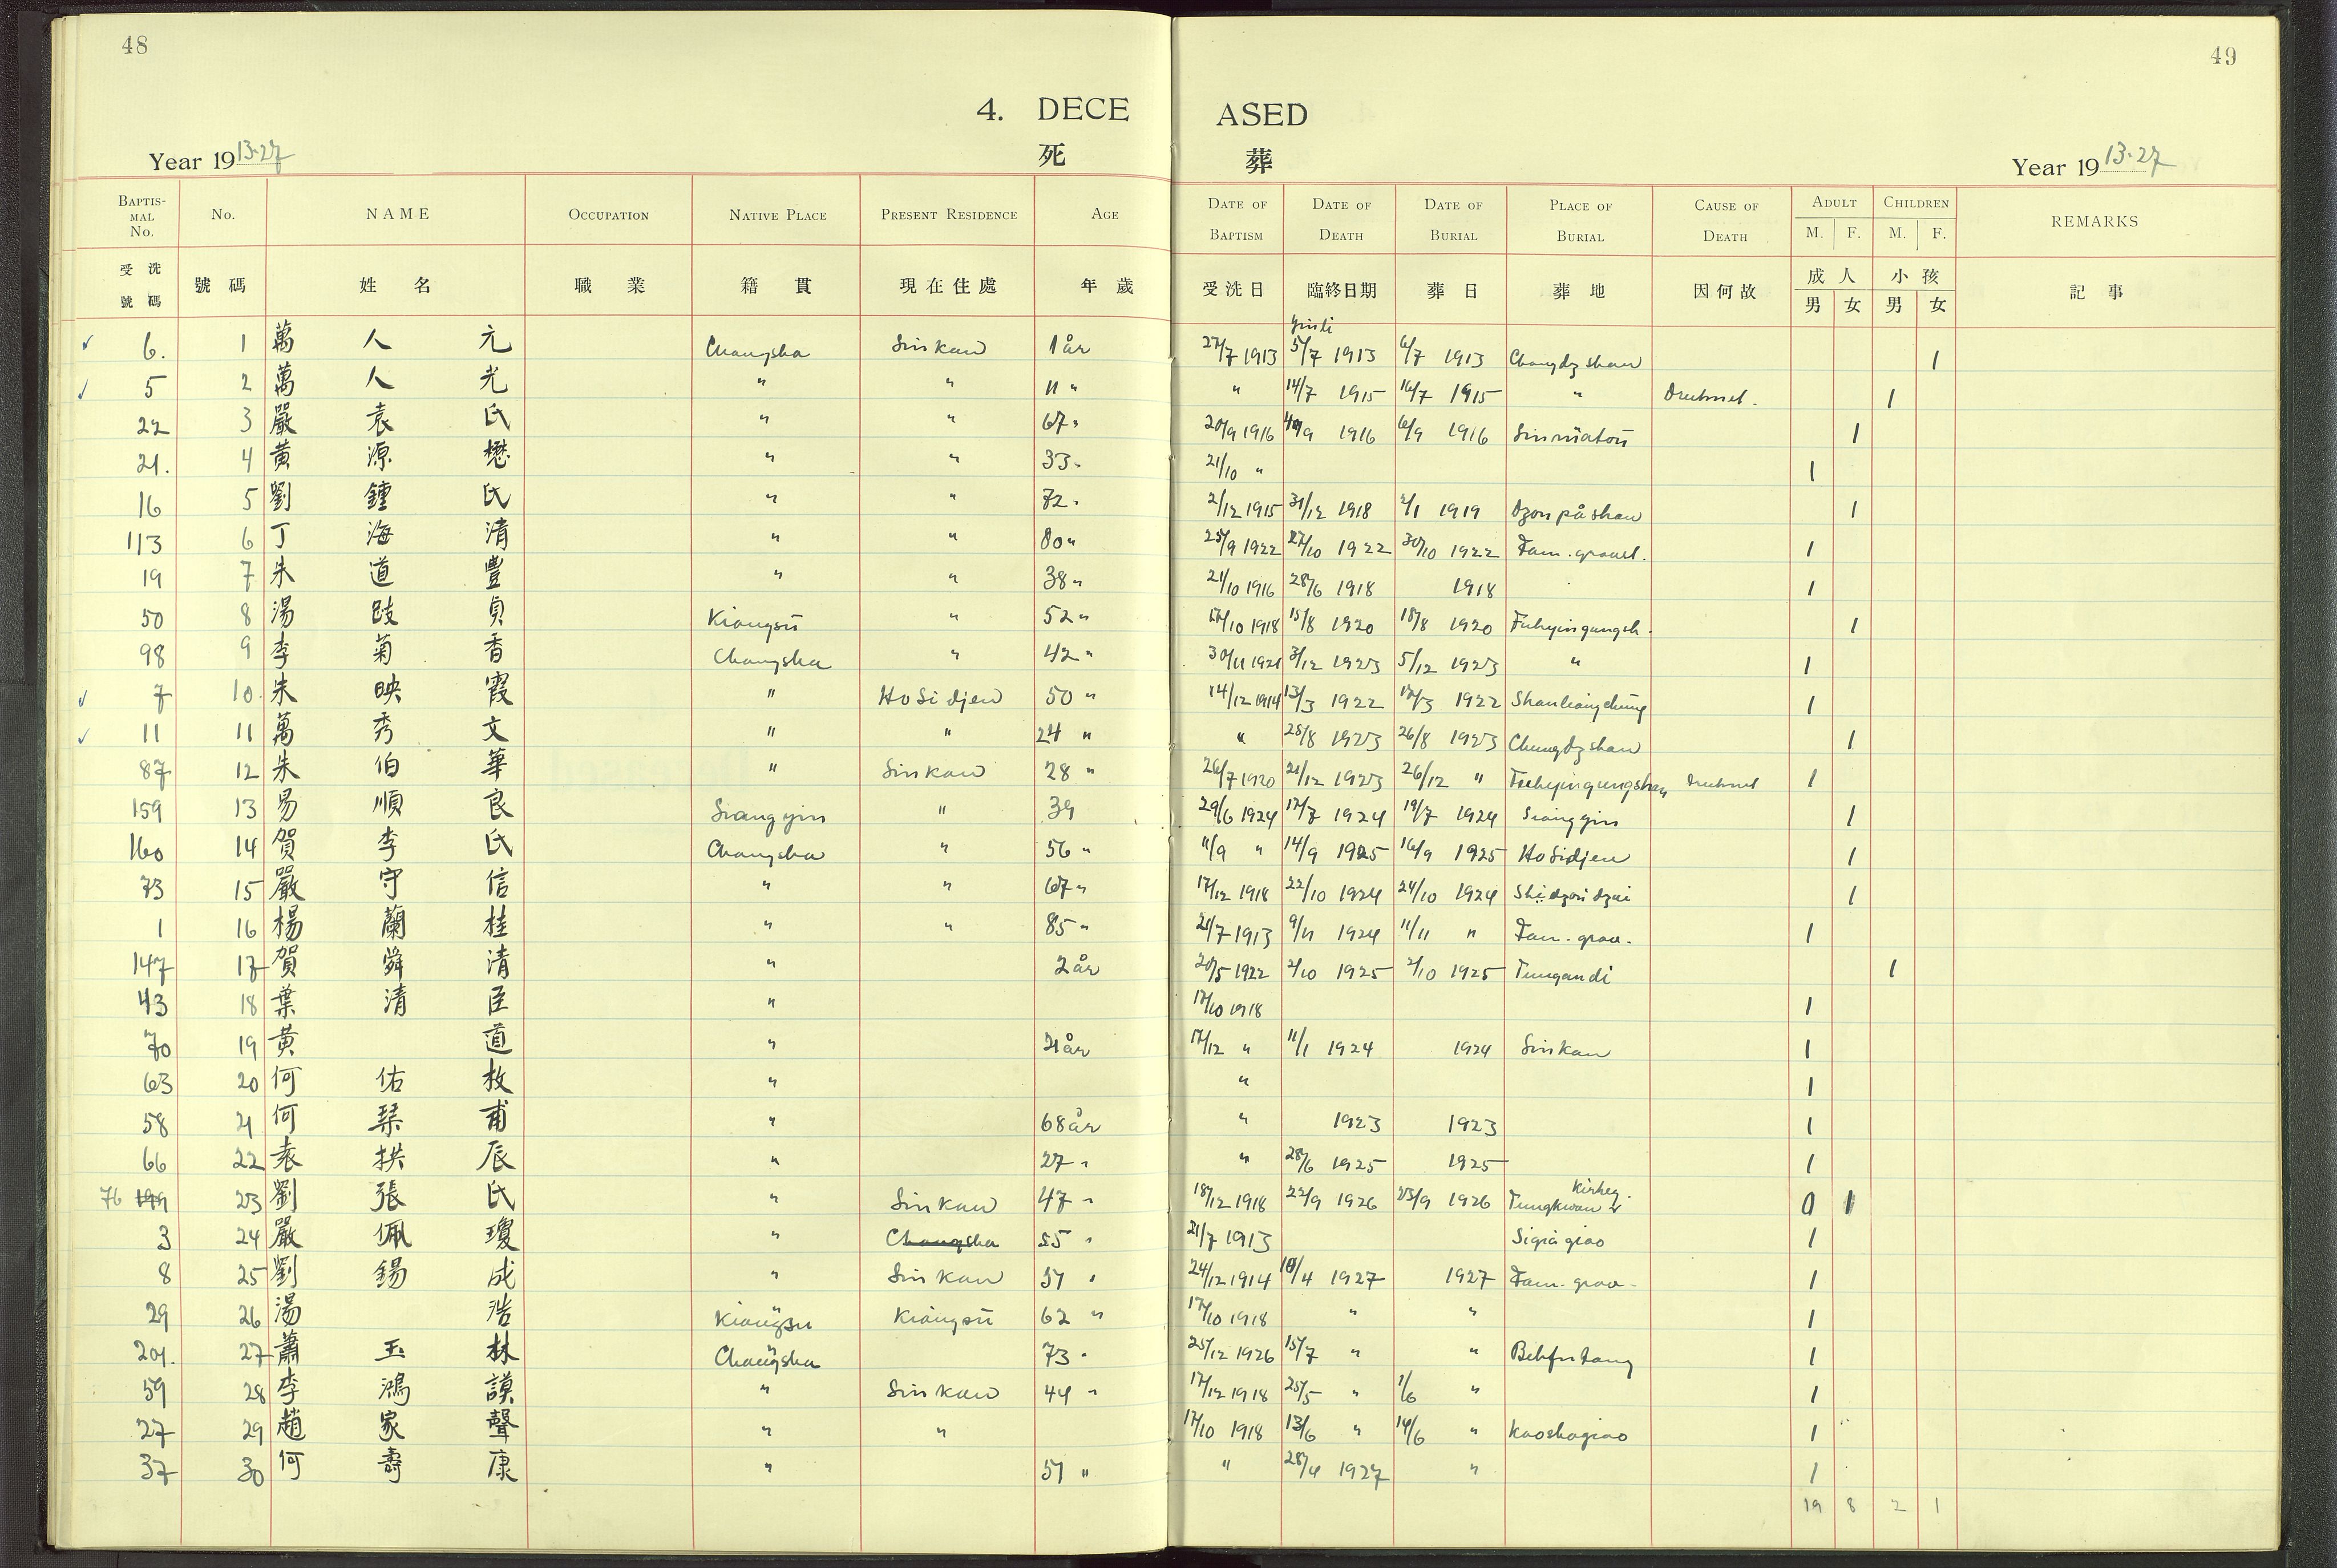 48
49
4. DECEASED
死 葬
Year 1913-27
Year 1913-27
BAPTIS-MAL No. No. NAME OCCUPATION NATIVE PLACE PRESENT RESIDENCE AGE DATE OF BAPTISM DATE OF DEATH DATE OF BURIAL PLACE OF BURIAL CAUSE OF DEATH ADULT M. F. CHILDREN M. F. REMARKS
受洗號碼 號碼 姓名 職業 籍貫 現在住處 年歲 受洗日 臨終日期 葬日 葬地 因何故 成人 男 女 小孩 男 女 記事
6. 1 萬人元 Changsha Sinkaw 1 år 27/7 1913 5/7 1913 6/7 1913 Changdzshan 1
5 2 萬人光 " " 11 " " 14/7 1915 16/7 1915 " Druknet. 1
22 3 嚴袁氏 " " 67 " 20/9 1916 1916 6/9 1916 Sinmatou 1
21. 4 黃源懋 " " 33 " 21/10 " 1
16 5 劉鍾氏 " " 72 " 2/12 1915 31/12 1918 2/1 1919 Dzonpåshan 1
113 6 丁海清 " " 80 " 25/9 1922 27/10 1922 30/10 1922 Fam. gravst. 1
19 7 朱道豐 " " 38 " 21/10 1916 28/6 1918 1918 1
50 8 湯 貞 Kiangsü " 52 " 17/10 1918 15/8 1920 18/8 1920 1
98 9 李菊香 Changsha " 42 " 30/11 1921 3/12 1923 5/12 1923 " 1
7 10. 朱映霞 " Hosidjen 50 " 14/12 1914 13/3 1922 17/3 1922 1
11 11 萬秀文 " " 24 " " 25/8 1923 26/8 1923 Chungdzshan 1
87 12 朱伯華 " Sinkaw 28 " 26/7 1920 21/12 1923 26/12 " druknet 1
159 13 易順良 Siangyin " 39 29/6 1924 17/7 1924 19/7 1924 Siangyin 1
160 14 賀李氏 Changsha " 56 " 11/9 " 14/9 1925 16/9 1925 Hosidjen 1
73 15 嚴守信 " " 67 " 17/12 1918 22/10 1924 24/10 1924 1
1 16 楊蘭桂 " " 85 " 21/7 1913 9/11 1924 11/11 " Fam. grav. 1
147 17 賀舜清 " 2 år 20/5 1922 2/10 1925 2/10 1925 Tungandi 1
43 18 葉清臣 " 17/10 1918 1
70 19 黃道 " 21 år 17/12 " 11/1 1924 1924 Sinkaw 1
63 20 何佑枚 " " 1
58 21 何琹甫 " 68 år " 1923 1923 1
66 22 袁拱辰 " 27 " " 28/6 1925 1925 1
76 23 劉張氏 " Sinkaw 47 " 18/12 1918 22/9 1926 23/9 1926 Tungkwan 1
3 24 嚴佩瓊 " Changsha 55 " 21/7 1913 Siqiäqiao 1
8 25 劉錫成 " Sinkaw 51 " 24/12 1914 1927 1927 Fam. grav. 1
29 26 湯浩 Kiangsu Kiangsü 62 " 17/10 1918 " " 1
201. 27 蕭玉林 Changsha 73 " 25/12 1926 15/7 " " 1
59 28 李鴻謨 " Sinkaw 44 " 17/12 1918 25/5 " 1/6 " 1
27 29 趙家聲 " " 17/10 1918 13/6 " 14/6 " Kaoshaqiao 1
37 30 何壽康 " 51 " " 28/4 1927 " 1
19 8 2 1